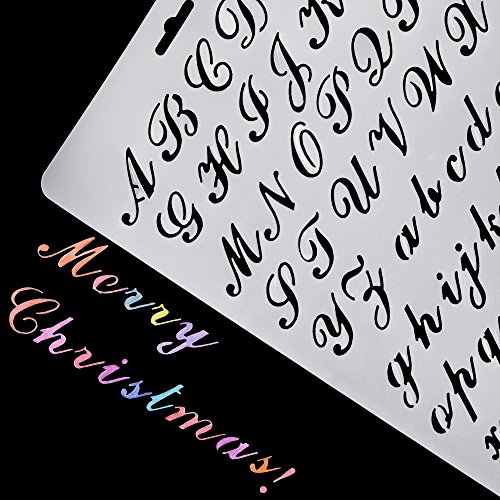 A B C D
G H I J K
M N O P Q
S T U V W X
Y Z a b c d
g h i j k
o p q
x
Merry
Christmas!